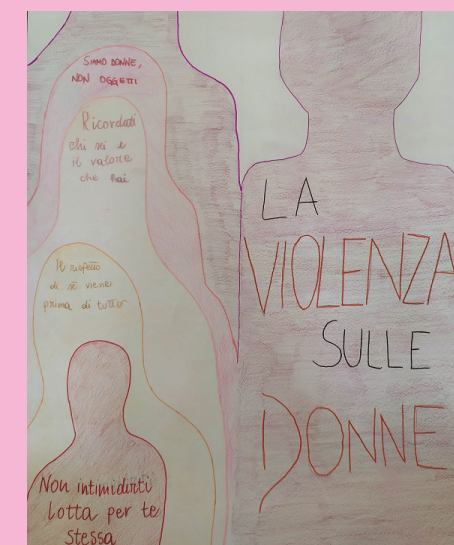 SIAMO DONNE,
NON OGGETTI
Ricordati
chi sei e
il valore
che hai
Il rispetto
di sè viene
prima di tutto
Non intimidirti
lotta per te
stessa
LA
VIOLENZA
SULLE
DONNE